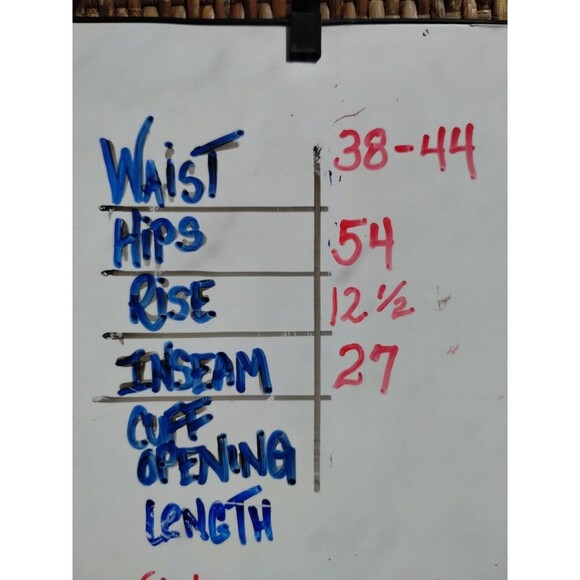 WAIST 38-44
Hips 54
RiSE 12 ½
INSEAM 27
CUFF
OPENING
LENGTH